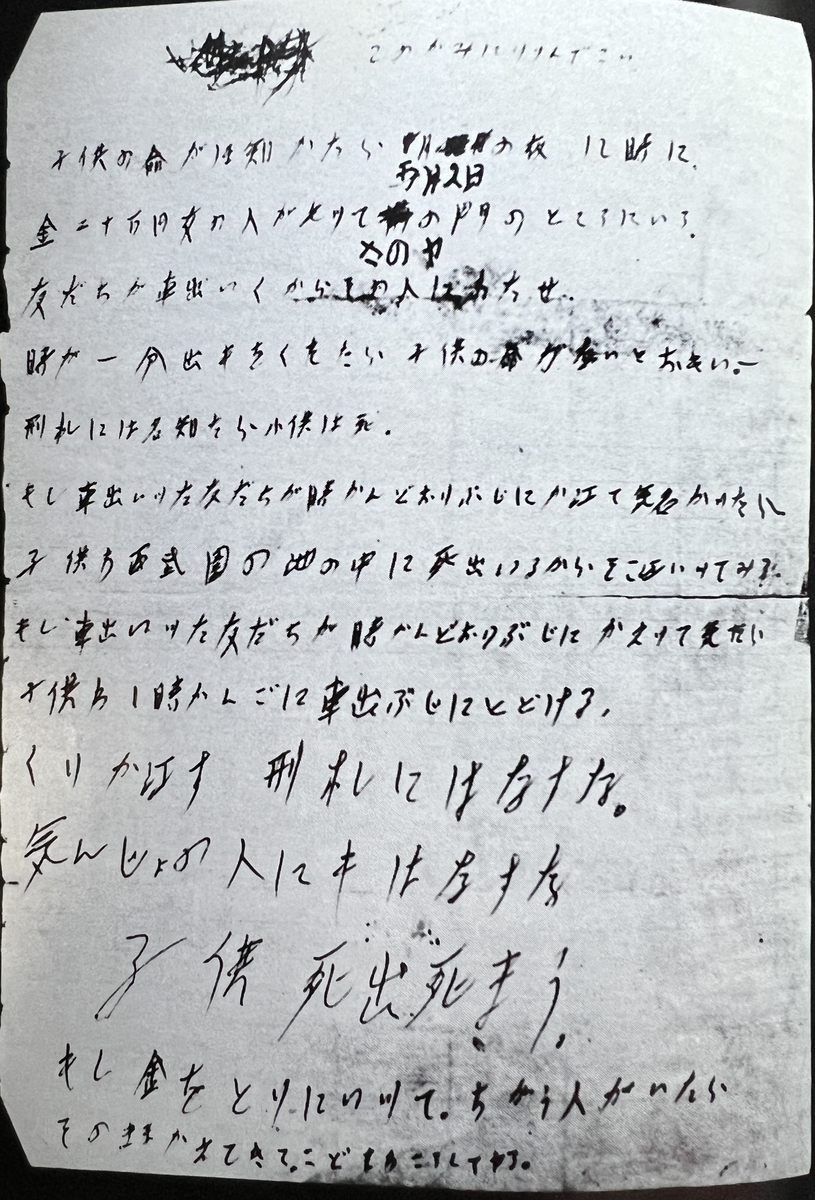 このかみにツツんでこい
子供の命がほ知かたら の夜 12時に、
五月2日
金二十万円女の人がもツて の門のところにいろ。
さのヤ
友だちが車出いくからその人にわたせ。
時が一分出もをくもたら子供の命がないとおもい。—
刑札には名知たら小供は死。
もし車出いツた友だちが時かんどおりぶじにか江て気名かツたら
子供わ西武園の池の中に死出いるからそこ江いツてみろ。
もし車出いツた友だちが時かんどおりぶじにかえツて気たら
子供わ1時かんごに車出ぶじにとどける、
くりか江す 刑札にはなすな。
気んじょの人にもはなすな
子供死出死まう。
もし金をとりにいツて。ちがう人がいたら
そのままかえてきて。こどもわころしてヤる。